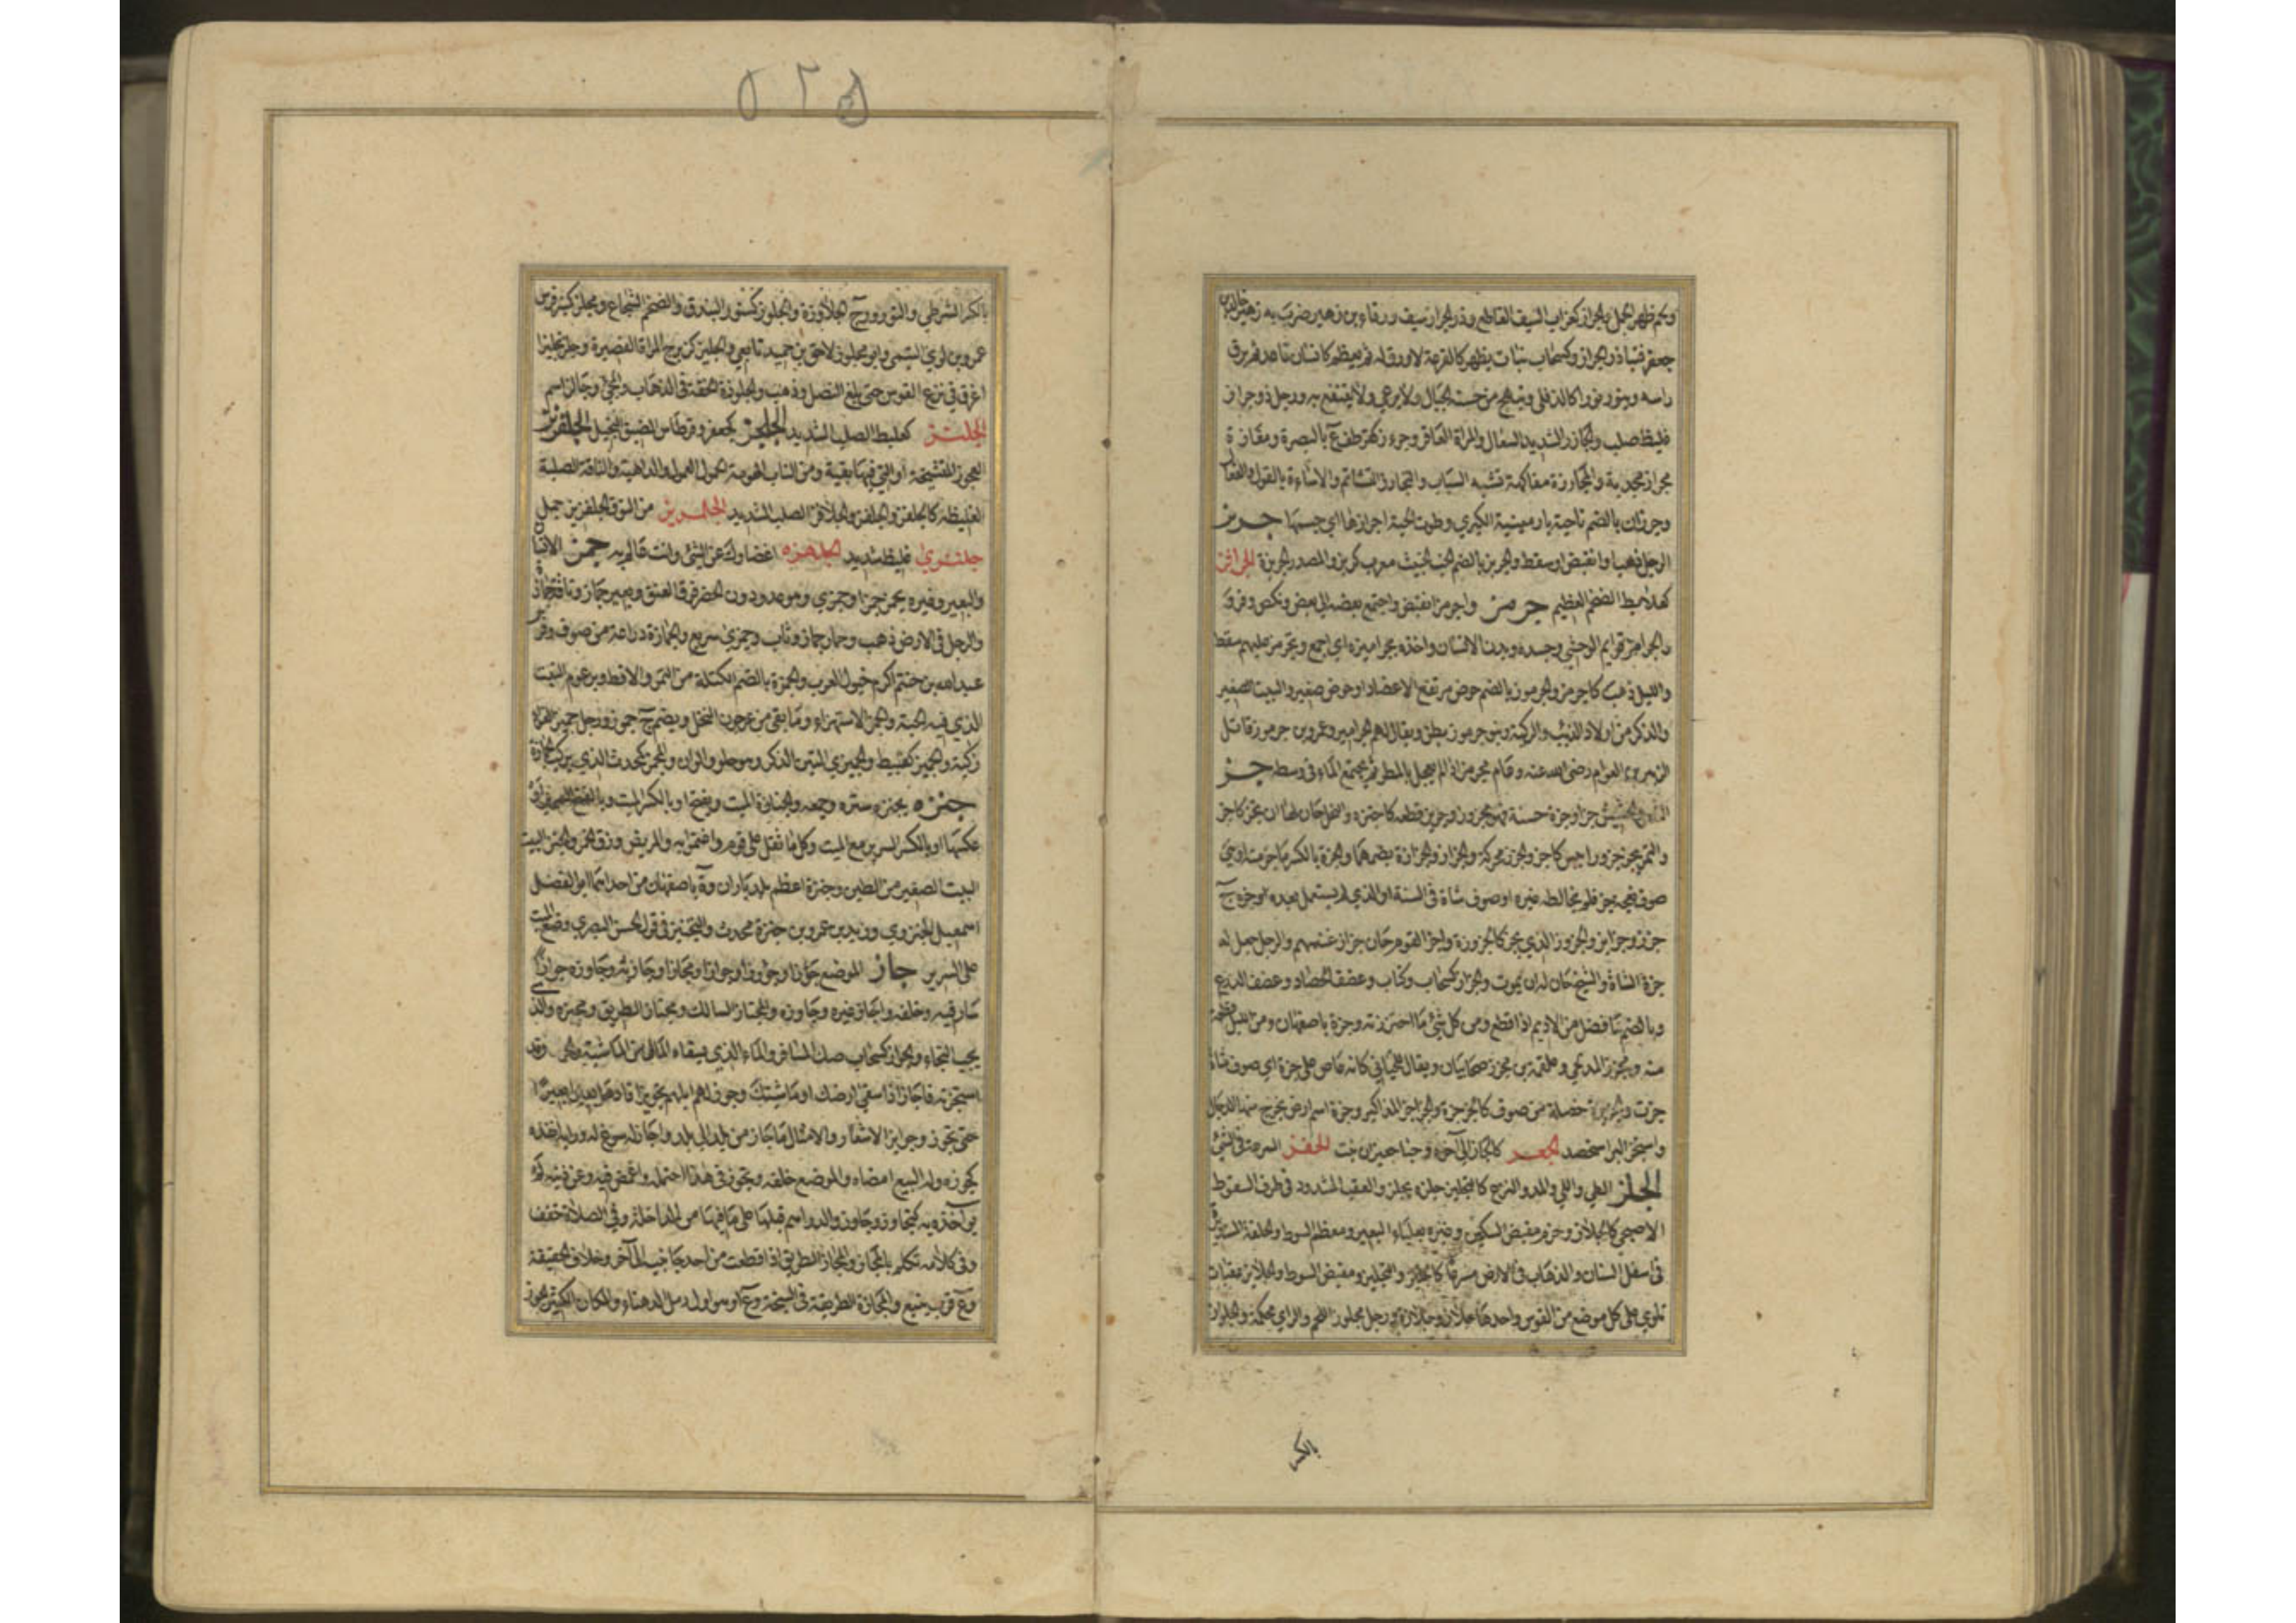 ٥٢٥
ولحم ظهر الجمل والجراز كغراب السيف القاطع وذو الجراز سيف ورقاء بن زهير ضرب به زهير خالد بن
جعفر فنبا ذو الجراز وكسحاب نبات يظهر كالقرعة لا ورق له ثم يعظم كانسان قاعد ثم يرق
راسه وينور نورا كالدفلى وتبهج من حسنه الجبال ولا يرعى ولا ينتفع به ورجل ذو جراز
غليظ صلب والجارز الشديد السعال والمراة العاقر وجرزة كهمزة بالبصرة ومفازة
مجراز مجدبة والمجارزة مفاكهة تشبه السباب والتجارز التشاتم والاساءة بالقول والفعال
وجرزان بالضم ناحية بارمينية الكبرى وطوت الحية اجرازها اي جسمها جربز
الرجل ذهب او انقبض او سقط والجربز بالضم الخب الخبيث معرب كربز والمصدر الجربزة الجرافز
كعلابط الضخم العظيم جرمز واجرمز انقبض واجتمع بعضه الى بعض ونكص وفر و
والجراميز قوايم الوحشي وجسده وبدن الانسان واخذه بجراميزه اي اجمع وتجرمز عليهم سقط
والليل ذهب كاجرمز والجرموز بالضم حوض مرتفع الاعضاد او حوض صغير والبيت الصغير
والذكر من اولاد الذئب والركية وبنو جرموز بطن ويقال لهم الجراميز وعمرو بن جرموز قاتل
الزبير بن العوام رضى الله عنه وعام مجرمز اذا لم يعجل بالمطر ثم يجتمع الماء في وسطه جز
الشعر والحشيش جزا وجزة حسنة فهو مجزوز وجزيز قطعه كاجتزه والنخل حان لها ان تجز كاجز
والتمر يجز جزوزا يبس كاجز والجزز محركة والجزاز والجزازة بضمهما والجزة بالكسر ما جز منه او هي
صوف نعجة جز فلم يخالطه غيره او صوف شاة في السنة او الذي لم يستعمل بعد جزه ج
جزز وجزايز والجزوز الذي يجز كالجزوزة واجز القوم حان جزاز غنمهم والرجل جعل له
جزة الشاة والشيخ حان له ان يموت والجزاز كسحاب وكتاب وعصف الحصاد وعصف الزرع
وبالضم ما فضل من الاديم اذا قطع ومن كل شئ ما اجتززته وجزة باصفهان ومن الليل قطعة
منه ومجزز المدلجي وعلقمة بن مجزز صحابيان ويقال للحياني كانه عاض على جزة اي صوف شاة
جزت والجزيزة خصلة من صوف كالجزجزة والجزاجز المذاكير وجزة اسم ارض يخرج منها الدجال
واستجز البر استحصد الجعز كالجاز الى آخره وجنا جعيزان نبت الجفز السرعة في المشي
الجلز الطي واللي والمد والنزع كالتجليز جلزه يجلز والعقب المشدود في طرف السوط
الاصبحي كالجلاز وحزم مقبض السكين وغيره بعلباء البعير ومعظم السوط والحلقة المستديرة
في اسفل السنان والذهاب في الارض مسرعا كالجليز والتجليز ومقبض السوط والجلايز عقبات
تلوى على كل موضع من القوس واحدها جلاز وجلازة ورجل مجلوز اللحم والراي محكمه والجلواز
بالكسر
بالكسر الشرطي والثؤرور ج الجلاوزة والجلوز كسنور البندق والضخم الشجاع ومجلز كمنبر فرس
عمرو بن لوي التيمي وابو مجلز لاحق بن حميد تابعي والجلئز كزبرج المراة القصيرة وجلز تجليزا
اغرق في نزع القوس حتى بلغ النصل وذهب والجلوزة الخفة في الذهاب والمجئ وجالز اسم
الجلبز كعلبط الصلب الشديد الجلحز كجعفر وقرطاس الضيق البخيل الجلفزيز
العجوز المتشنجة او التي فيها بقية ومن الناب الهرمة الحمول العمول والداهية والناقة الصلبة
الغليظة كالجلفز والجلفز والجلافز الصلب الشديد الجلمزيز من النوق الجلفزيز جمل
جلنزى غليظ شديد الجلهزة اغضاؤك عن الشئ وانت عالم به جمز الانسان
والبعير وغيره يجمز جمزا وجمزى وهو عدو دون الحضر فوق العنق وبعير جماز وناقة جمازة
والرجل في الارض ذهب وحمار جماز وثاب وجمزى سريع والجمازة دراعة من صوف وفرس
عبد الله بن حنتم اكرم خيول العرب والجمزة بالضم الكتلة من التمر والاقط وبرعوم النبت
الذي فيه الحبة والجمز الاستهزاء وما بقى من عرجون النخل ويضم ج جموز ورجل جميز الفؤاد
زكيه والجميز كقبيط والجميزى التين الذكر وهو حلو والوان والمجمز كمحدث الذي يركب الجمازة
جنزه يجنزه ستره وجمعه والجنازة الميت ويفتح او بالكسر الميت وبالفتح السرير او
عكسها او بالكسر السرير مع الميت وكل ما ثقل على قوم واغتموا به والمريض وزق الخمر والجنز البيت
البيت الصغير من الطين وجنزة اعظم بلد باران وة باصفهان من احداهما ابو الفضل
اسمعيل الجنزوي ويزيد بن عمرو بن جنزة محدث والتجنيز في قول الحسن البصري وضع الميت
على السرير جاز الموضع جوازا وجؤوزا وجوازا ومجازا وجاز به وجاوزه جوازا
سار فيه وخلفه واجاز غيره وجاوزه والمجتاز السالك ومجتاب الطريق ومجيزه والذي
يحب النجاء والجواز كسحاب صك المسافر والماء الذي يسقاه المال من الماشية والحرث وقد
استجزته فاجاز اذا سقى ارضك او ماشيتك وجوز لهم ابلهم تجويزا قادها بعيرا بعيرا
حتى تجوز وجوايز الاشعار والامثال ما جاز من بلد الى بلد واجاز له سوغ له ورايه انفذه
كجوزه وله البيع امضاه والموضع خلفه وتجوز في هذا احتمله واغمض فيه وعن ذنبه لم
يواخذه به كتجاوز وجاوز والدراهم قبلها على ما فيها من الداخلة وفي الصلاة خفف
وفي كلامه تكلم بالمجاز والمجاز الطريق اذا قطعت من احد جانبيه الى الآخر وخلاف الحقيقة
وع قرب ينبع والمجازة الطريقة في السبخة وع او هو اول رمل الدهناء والمكان الكثير الجوز